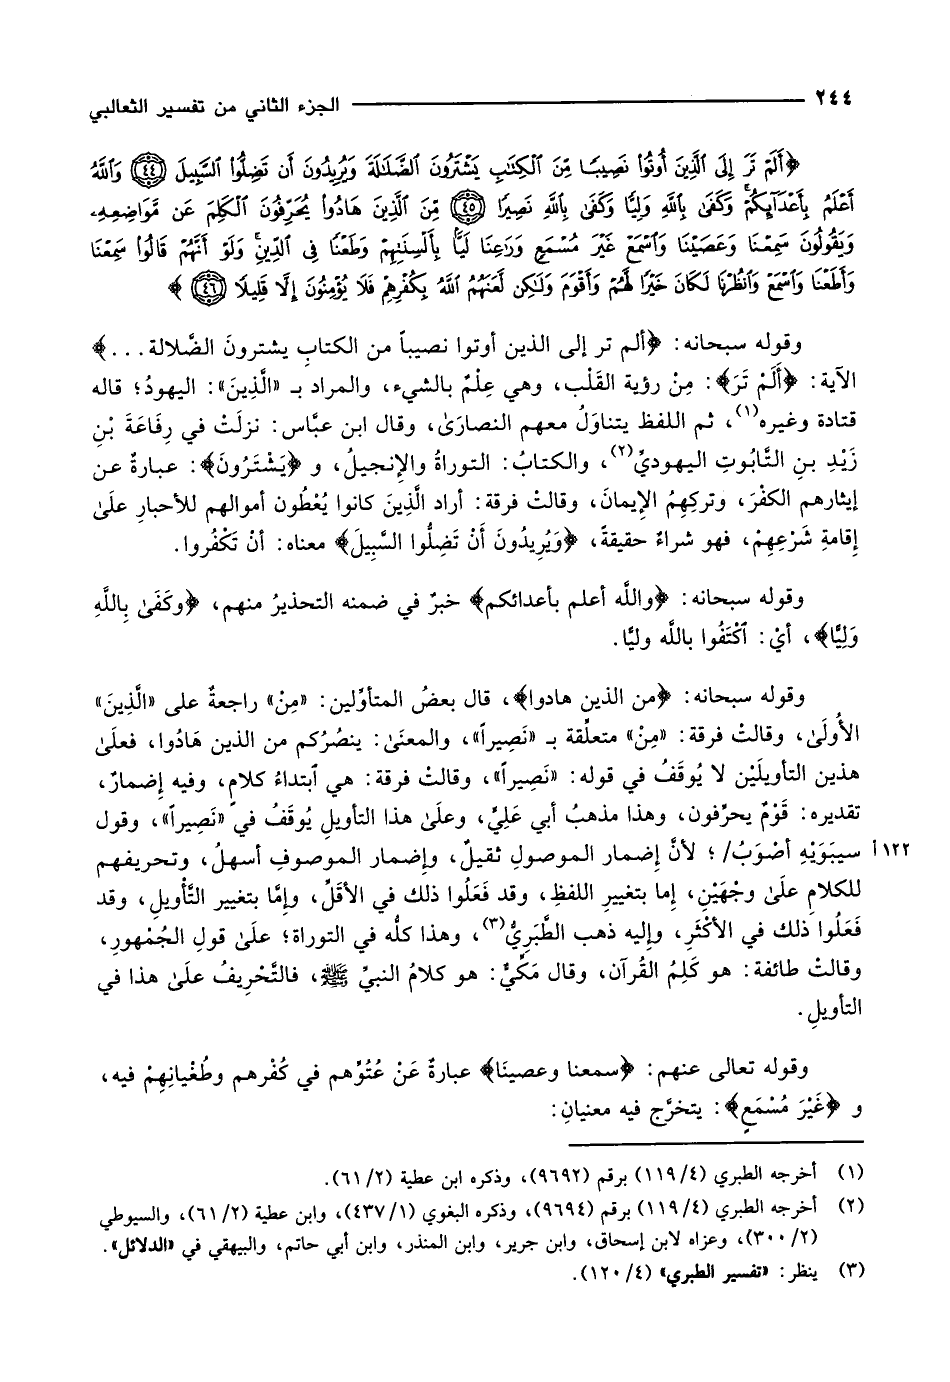 ٢٤٤ ــــــــــ الجزء الثاني من تفسير الثعالبي
﴿أَلَمْ تَرَ إِلَى ٱلَّذِينَ أُوتُوا۟ نَصِيبًا مِّنَ ٱلْكِتَٰبِ يَشْتَرُونَ ٱلضَّلَٰلَةَ وَيُرِيدُونَ أَن تَضِلُّوا۟ ٱلسَّبِيلَ ﴿٤٤﴾ وَٱللَّهُ
أَعْلَمُ بِأَعْدَآئِكُمْ ۚ وَكَفَىٰ بِٱللَّهِ وَلِيًّا وَكَفَىٰ بِٱللَّهِ نَصِيرًا ﴿٤٥﴾ مِّنَ ٱلَّذِينَ هَادُوا۟ يُحَرِّفُونَ ٱلْكَلِمَ عَن مَّوَاضِعِهِۦ
وَيَقُولُونَ سَمِعْنَا وَعَصَيْنَا وَٱسْمَعْ غَيْرَ مُسْمَعٍ وَرَٰعِنَا لَيًّۢا بِأَلْسِنَتِهِمْ وَطَعْنًا فِى ٱلدِّينِ ۚ وَلَوْ أَنَّهُمْ قَالُوا۟ سَمِعْنَا
وَأَطَعْنَا وَٱسْمَعْ وَٱنظُرْنَا لَكَانَ خَيْرًا لَّهُمْ وَأَقْوَمَ وَلَٰكِن لَّعَنَهُمُ ٱللَّهُ بِكُفْرِهِمْ فَلَا يُؤْمِنُونَ إِلَّا قَلِيلًا ﴿٤٦﴾ ﴾
وقوله سبحانه: ﴿ألم تر إلى الذين أوتوا نصيباً من الكتابِ يشترونَ الضَّلالة...﴾
الآية: ﴿أَلَمْ تَرَ﴾: مِنْ رؤية القَلْب، وهي عِلْمٌ بالشيء، والمراد بـ «الَّذِينَ»: اليهودُ؛ قاله
قتادة وغيره(١)، ثم اللفظ يتناوَلُ معهم النصارَىٰ، وقال ابن عبَّاس: نزلَتْ في رِفَاعَةَ بْنِ
زَيْدِ بنِ التَّابُوتِ اليهوديِّ(٢)، والكتابُ: التوراةُ والإنجيلُ، و ﴿يَشْتَرُونَ﴾: عبارةٌ عن
إيثارهم الكفْرَ، وتركِهِمُ الإيمانَ، وقالتْ فرقة: أراد الَّذينَ كانوا يُعْطُون أموالهم للأحبارِ علَىٰ
إقامةِ شَرْعِهِمْ، فهو شراءٌ حقيقةً، ﴿وَيُرِيدُونَ أَنْ تَضِلُّوا السَّبِيلَ﴾ معناه: أنْ تَكْفُروا.
وقوله سبحانه: ﴿واللَّه أعلم بأعدائكم﴾ خبرٌ في ضمنه التحذيرُ منهم، ﴿وكَفَىٰ بِاللَّهِ
وَلِيًّا﴾، أيْ: ٱكْتَفُوا باللَّه وليًّا.
وقوله سبحانه: ﴿من الذين هادوا﴾، قال بعضُ المتأوِّلين: «مِنْ» راجعةٌ على «الَّذِينَ»
الأُولَىٰ، وقالتْ فرقة: «مِنْ» متعلِّقة بـ «نَصِيراً»، والمعنَىٰ: ينصُرُكم من الذين هَادُوا، فعلَىٰ
هذين التأويلَيْن لا يُوقَفُ في قوله: «نَصِيراً»، وقالتْ فرقة: هي ٱبتداءُ كلامٍ، وفيه إضمارٌ،
تقديره: قَوْمٌ يحرِّفون، وهذا مذهبُ أبي عَلِيٍّ، وعلَىٰ هذا التأويلِ يُوقَفُ في «نَصِيراً»، وقول
١٢٢أ سيبَوَيْهِ أصْوَبُ/؛ لأنَّ إضمار الموصولِ ثقيلٌ، وإضمار الموصوفِ أسهلُ، وتحريفهم
للكلامِ علَىٰ وجْهَيْنِ، إما بتغييرِ اللفظِ، وقد فَعَلُوا ذلك في الأقَلِّ، وإمَّا بتغيير التَّأْويلِ، وقد
فَعَلُوا ذلك في الأكْثَرِ، وإليه ذهب الطَّبَرِيُّ(٣)، وهذا كلُّه في التوراة؛ علَىٰ قولِ الجُمْهورِ،
وقالتْ طائفة: هو كَلِمُ القُرآن، وقال مَكِّيٌّ: هو كلامُ النبيِّ ﷺ، فالتَّحْرِيفُ علَىٰ هذا في
التأويلِ.
وقوله تعالى عنهم: ﴿سمعنا وعصينَا﴾ عبارةٌ عَنْ عُتُوِّهم في كُفْرهم وطُغْيانِهِمْ فيه،
و ﴿غَيْرَ مُسْمَعٍ﴾: يتخرَّج فيه معنيانِ:
(١) أخرجه الطبري (٤/ ١١٩) برقم (٩٦٩٢)، وذكره ابن عطية (٢/ ٦١).
(٢) أخرجه الطبري (٤/ ١١٩) برقم (٩٦٩٤)، وذكره البغوي (١/ ٤٣٧)، وابن عطية (٢/ ٦١)، والسيوطي
(٢/ ٣٠٠)، وعزاه لابن إسحاق، وابن جرير، وابن المنذر، وابن أبي حاتم، والبيهقي في «الدلائل».
(٣) ينظر: «تفسير الطبري» (٤/ ١٢٠).